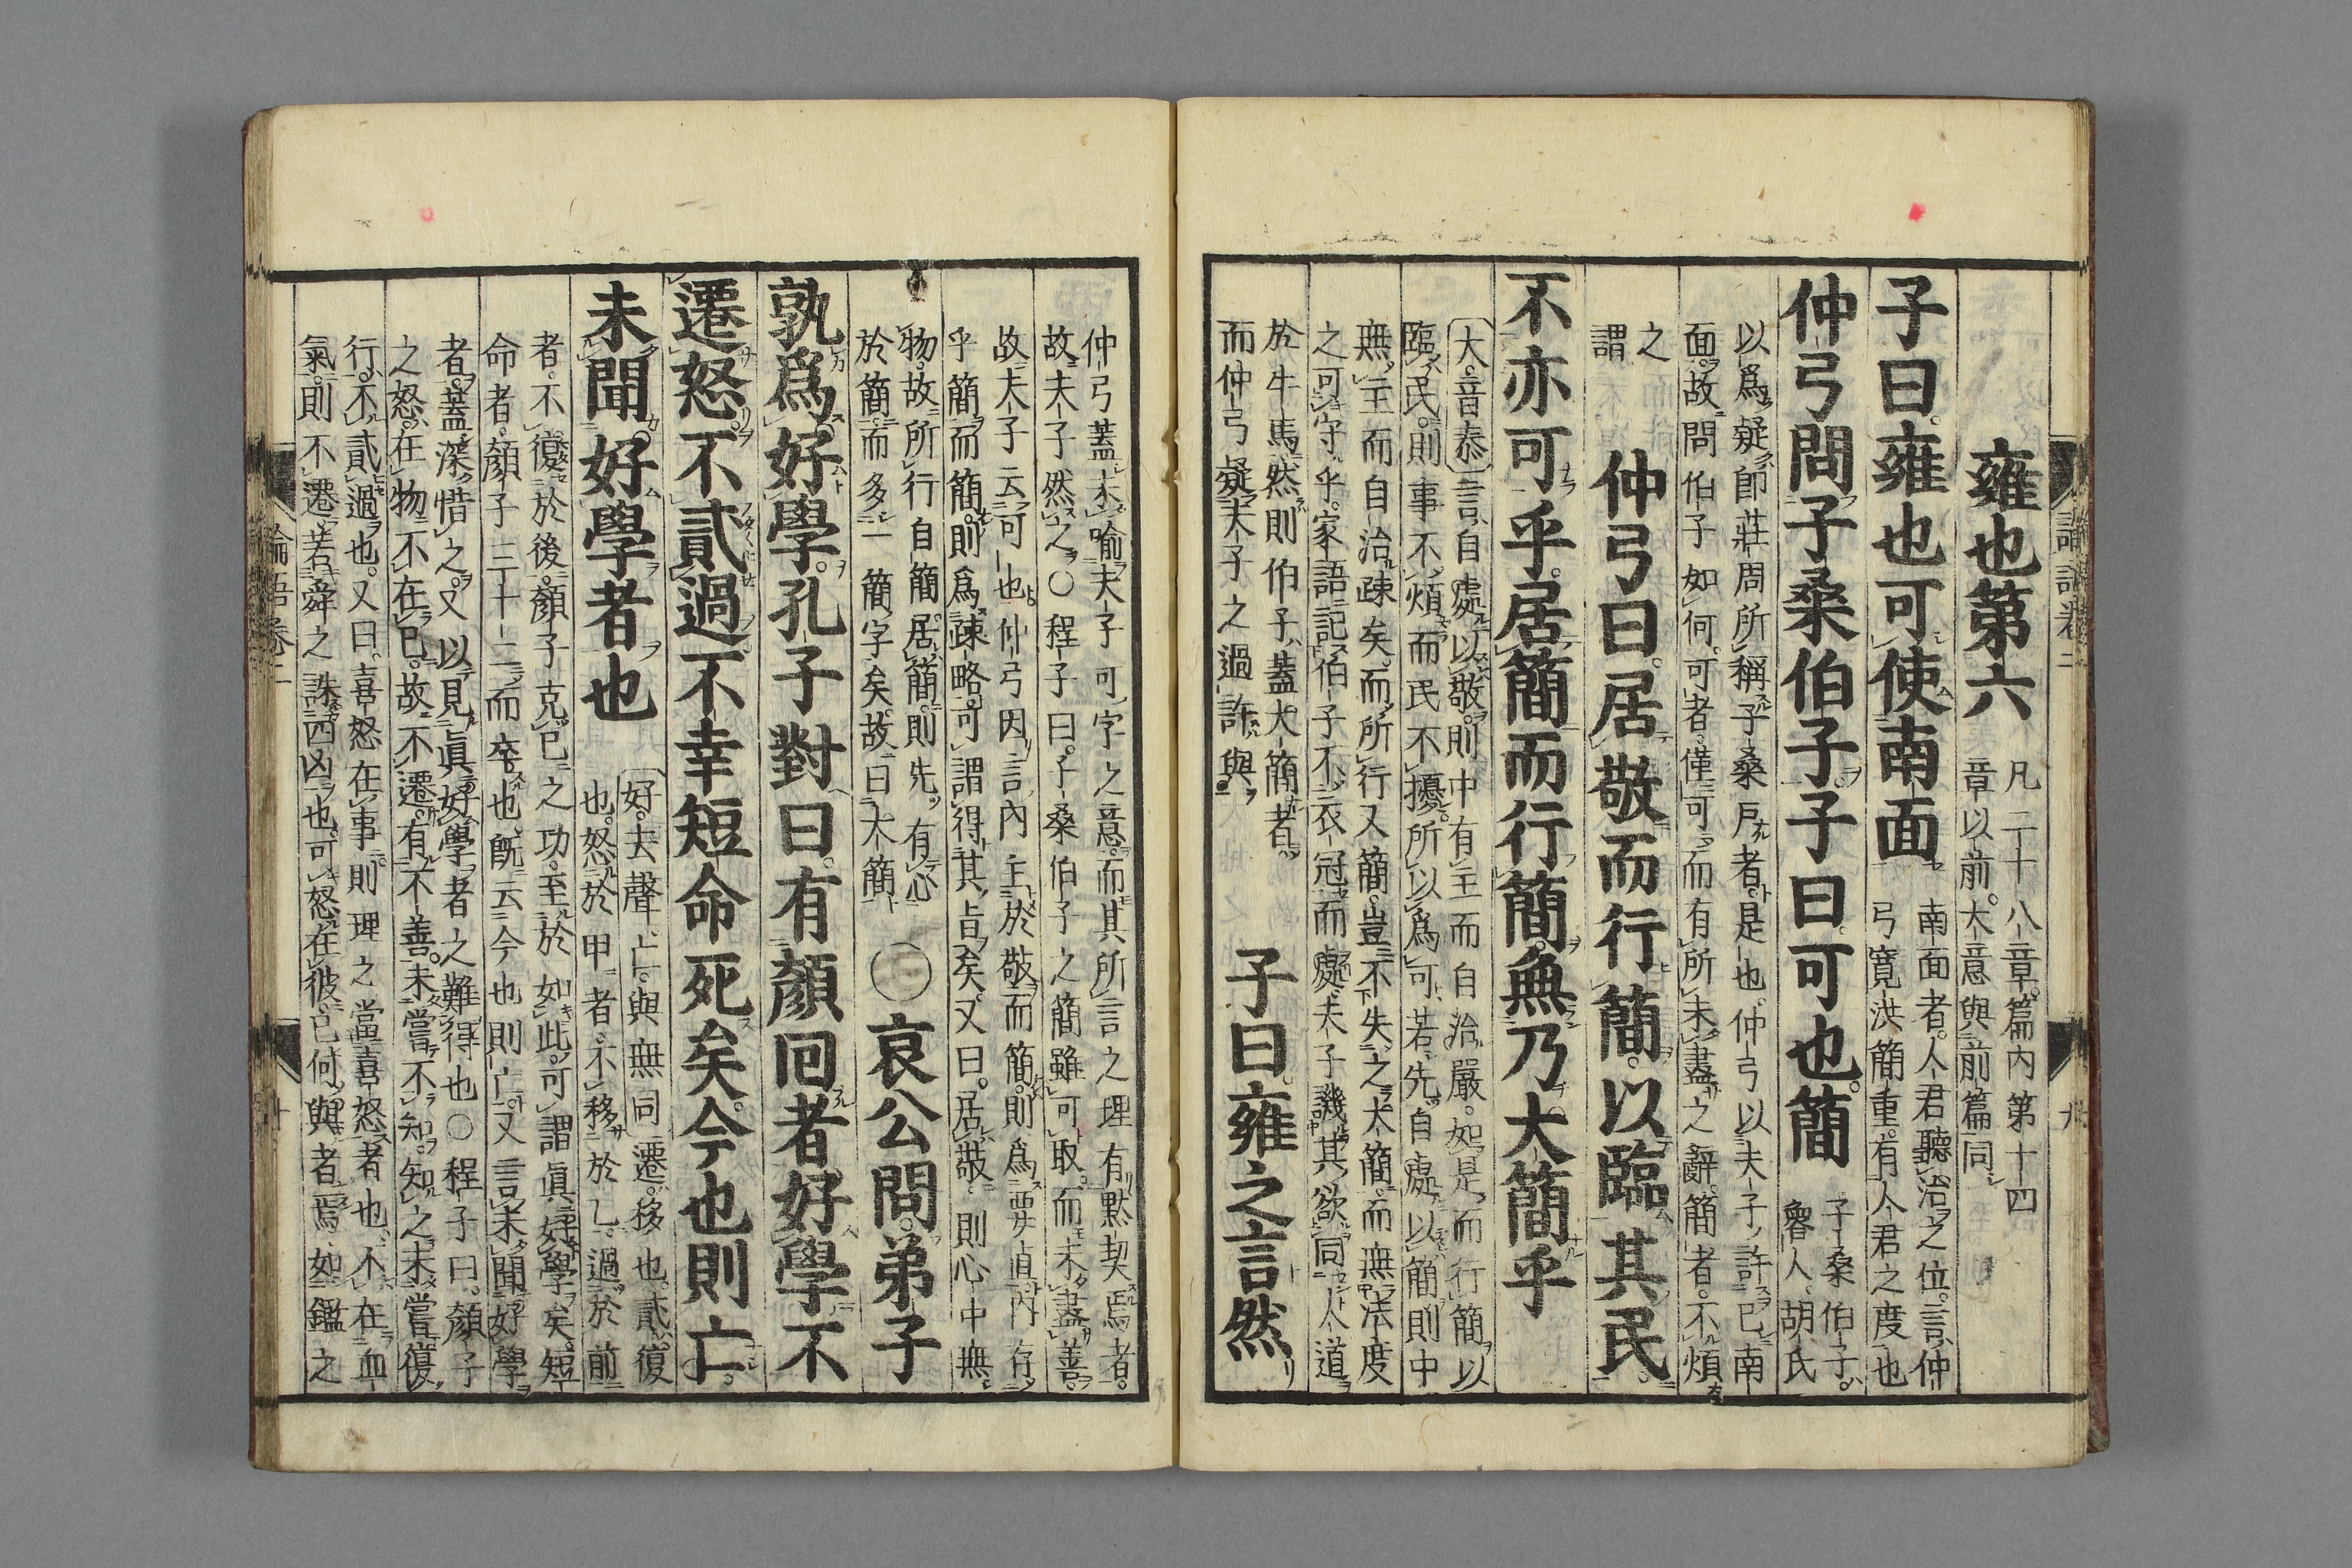 論語卷二
九
雍也第六
凡二十八章篇內第十四
章以前大意與前篇同
子曰雍也可使南面
南面者人君聽治之位言仲
弓寬洪簡重有人君之度也
仲弓問子桑伯子子曰可也簡
子桑伯子
魯人胡氏
以爲疑卽莊周所稱子桑戶者是也仲弓以夫子許己南
面故問伯子如何可者僅可而有所未盡之辭簡者不煩
之
謂
仲弓曰居敬而行簡以臨其民
不亦可乎居簡而行簡無乃大簡乎
大音泰言自處以敬則中有主而自治嚴如是而行簡以
臨民則事不煩而民不擾所以爲可若先自處以簡則中
無主而自治疎矣而所行又簡豈不失之大簡而無法度
之可守乎家語記伯子不衣冠而處夫子譏其欲同人道
於牛馬然則伯子蓋大簡者
而仲弓疑夫子之過許與
子曰雍之言然
仲弓蓋未喻夫子可字之意而其所言之理有默契焉者
故夫子然之○程子曰子桑伯子之簡雖可取而未盡善
故夫子云可也仲弓因言內主於敬而簡則爲要直內存
乎簡而簡則爲疎略可謂得其旨矣又曰居敬則心中無
物故所行自簡居簡則先有心
於簡而多一簡字矣故曰大簡
○哀公問弟子
孰爲好學孔子對曰有顏回者好學不
遷怒不貳過不幸短命死矣今也則亡
未聞好學者也
好去聲亡與無同遷移也貳復
也怒於甲者不移於乙過於前
者不復於後顏子克己之功至於如此可謂眞好學矣短
命者顏子三十二而卒也旣云今也則亡又言未聞好學
者蓋深惜之又以見眞好學者之難得也○程子曰顏子
之怒在物不在己故不遷有不善未嘗不知知之未嘗復
行不貳過也又曰喜怒在事則理之當喜怒者也不在血
氣則不遷若舜之誅四凶也可怒在彼己何與焉如鑑之
論語卷二